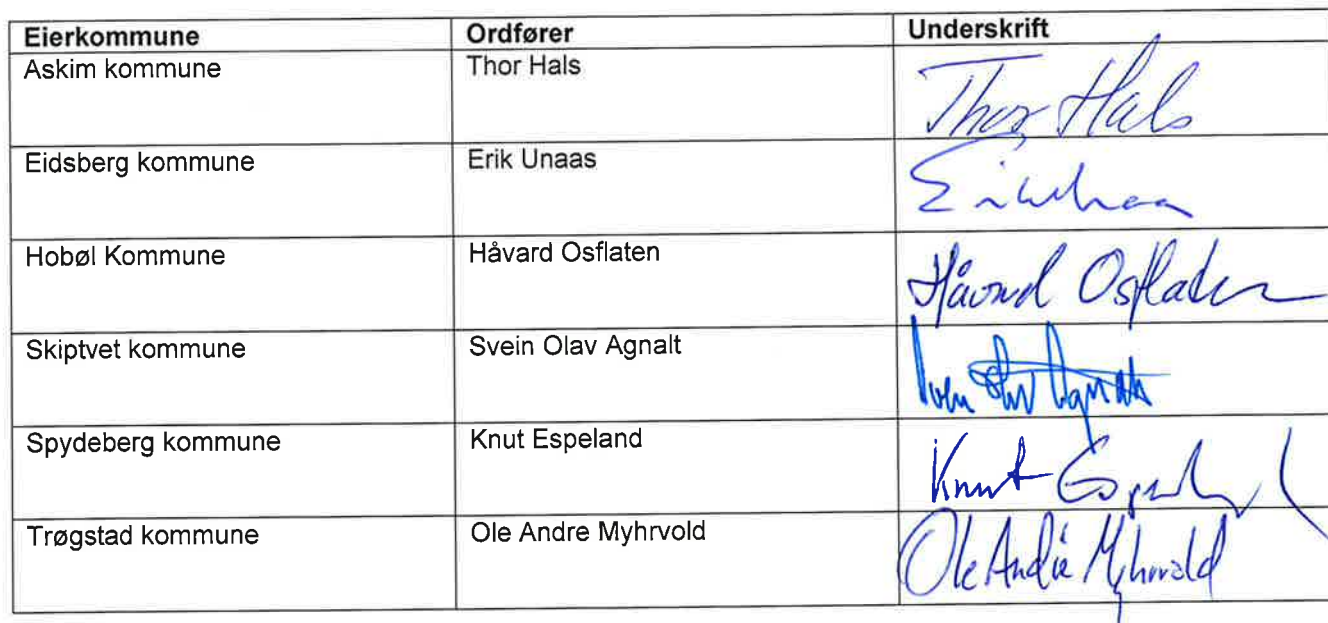 Eierkommune Ordfører Underskrift
Askim kommune Thor Hals Thor Hals
Eidsberg kommune Erik Unaas Erik Unaas
Hobøl Kommune Håvard Osflaten Håvard Osflaten
Skiptvet kommune Svein Olav Agnalt Svein Olav Agnalt
Spydeberg kommune Knut Espeland Knut Espeland
Trøgstad kommune Ole Andre Myhrvold Ole André Myhrvold